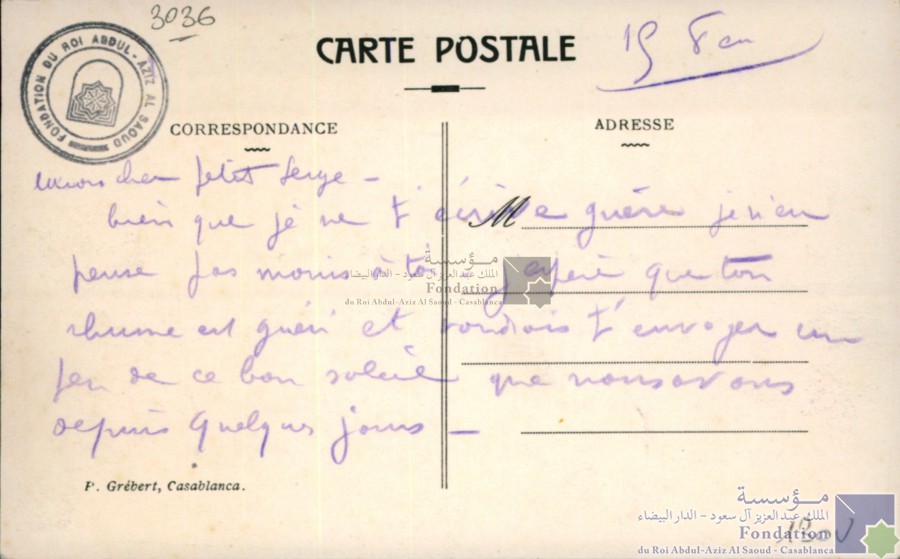 3036
CARTE POSTALE
15 Jan
FONDATION DU ROI ABDUL-AZIZ AL SAOUD
CORRESPONDANCE
ADRESSE
mon cher petit Serge –
bien que je ne t'écrive guère je n'en
M
pense pas moins à toi j'espère que ton
rhume est guéri et voudrais t'envoyer un
peu de ce bon soleil que nous avons
depuis quelques jours –
مؤسسة
الملك عبد العزيز آل سعود - الدار البيضاء
Fondation
du Roi Abdul-Aziz Al Saoud - Casablanca
P. Grébert, Casablanca.
مؤسسة
الملك عبد العزيز آل سعود - الدار البيضاء
Fondation
du Roi Abdul-Aziz Al Saoud - Casablanca